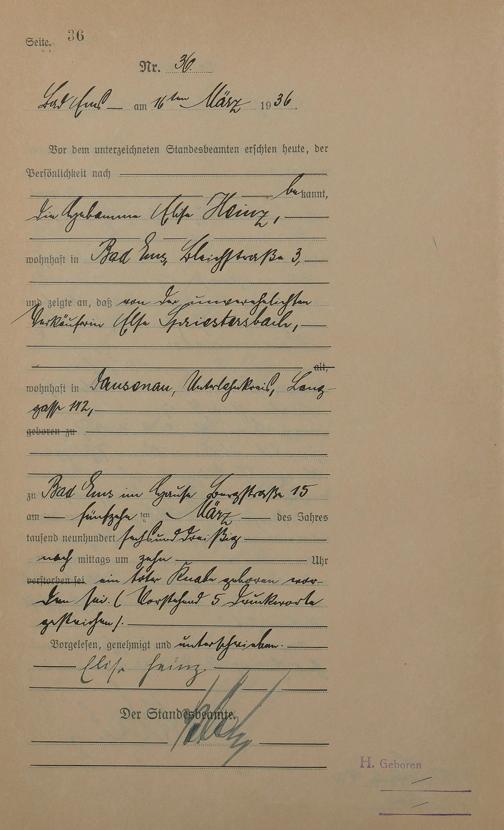 Seite. 36
Nr. 36.
Bad Ems am 16ten März 1936.
Vor dem unterzeichneten Standesbeamten erschien heute, der
Persönlichkeit nach
bekannt,
die Hebamme Elise Heinz,
wohnhaft in Bad Ems, Bleichstraße 3,
und zeigte an, daß von der unverehelichten
Verkäuferin Else Spriestersbach,
alt,
wohnhaft in Dausenau, Unterlahnkreis, Lang-
gasse 112,
geboren zu
zu Bad Ems im Hause Bergstraße 15
am fünfzehn ten März des Jahres
tausend neunhundert sechsunddreißig
nach mittags um zehn Uhr
verstorben sei. ein toter Knabe geboren wor-
den sei. (Vorstehend 5 Druckworte
gestrichen).
Vorgelesen, genehmigt und unterschrieben.
Elise Heinz.
Der Standesbeamte.
H. Geboren